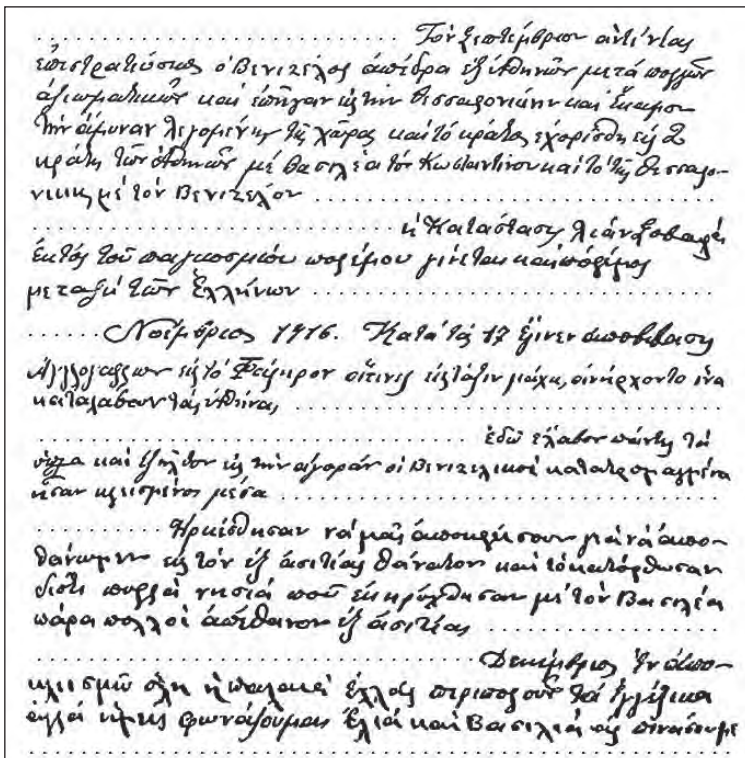 Τόν Σεπτέμβριον αὐτῆς
ἐπιστρατεύσεως ὁ Βενιζέλος ἀπέδρα ἐξ Ἀθηνῶν μετά πολλῶν
ἀξιωματικῶν καί ἐπῆγαν εἰς τήν Θεσσαλονίκην καί ἔκαμαν
τήν ἄμυναν λεγομένην τῆς χώρας καί τό κράτος ἐχορίσθη εἰς 2
κράτη τῶν Ἀθηνῶν μέ βασιλέα τόν Κωσταντῖνον καί τό τῆς Θεσσαλο-
νικης με τόν Βενιζέλον
ἡ Κατάστασις λίαν σοβαρή
Ἐκτός τοῦ παγκοσμίου πολέμου γίνεται και πόλεμος
μεταξύ τῶν Ἑλλήνων
Νοέμβριος 1916. Κατά τάς 17 ἔγινεν ἀποβίβασις
Ἀγγλογάλλων εἰς τό Φάληρον οἵτινες εἰς τάξιν μάχης συνήρχοντο ἵνα
καταλάβουν τάς Ἀθήνας
ἐδῶ ἔλαβον πάντες τά
ὅπλα καί ἐξῆλθον εἰς τήν ἀγοράν οἱ Βενιζελικοί κατατρομαγμένοι
ἦσαν κλεισμένοι μέσα
Ἠρκέσθησαν νά μᾶς ἀποκλείσουν γιά νά ἀπο-
θάνωμεν εἰς τόν ἐξ ἀσιτίας θάνατον καί τό κατόρθωσαν
διότι πολλά νησιά ποῦ ἐκηρύχθησαν μέ τόν Βασιλέα
πάρα πολλοί ἀπέθανον ἐξ ἀσιτίας
Δεκέμβριος Ἐν ἀπο-
κλεισμῶ ὅλη ἡ παλαιά ἑλλάς περιπολοῦν τά ἐγγλέζικα
ἀλλά ἡμεῖς φωνάζουμαι Ἐλιά καί Βασιλιά ἄς πινάσουμε